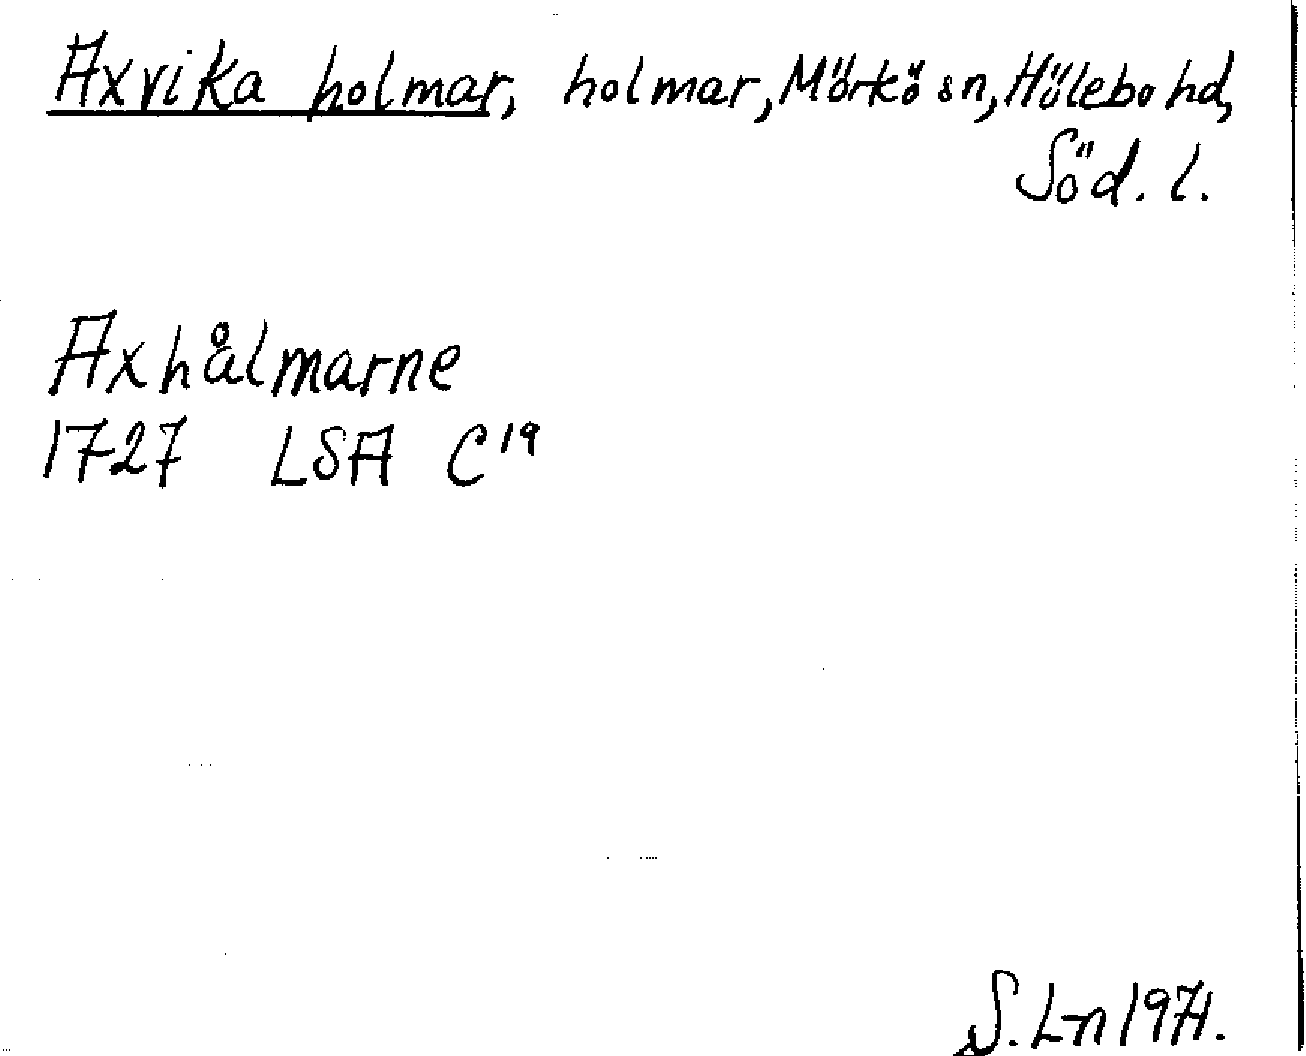 Axvika holmar, holmar, Mörkö sn, Hölebo hd,
Söd. l.
Axhålmarne
1727 LSA C19
S. Ln 1971.